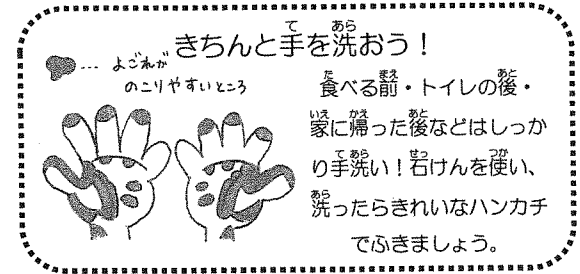 きちんと手を洗おう！
… よごれが
のこりやすいところ
食べる前・トイレの後・
家に帰った後などはしっか
り手洗い！石けんを使い、
洗ったらきれいなハンカチ
でふきましょう。